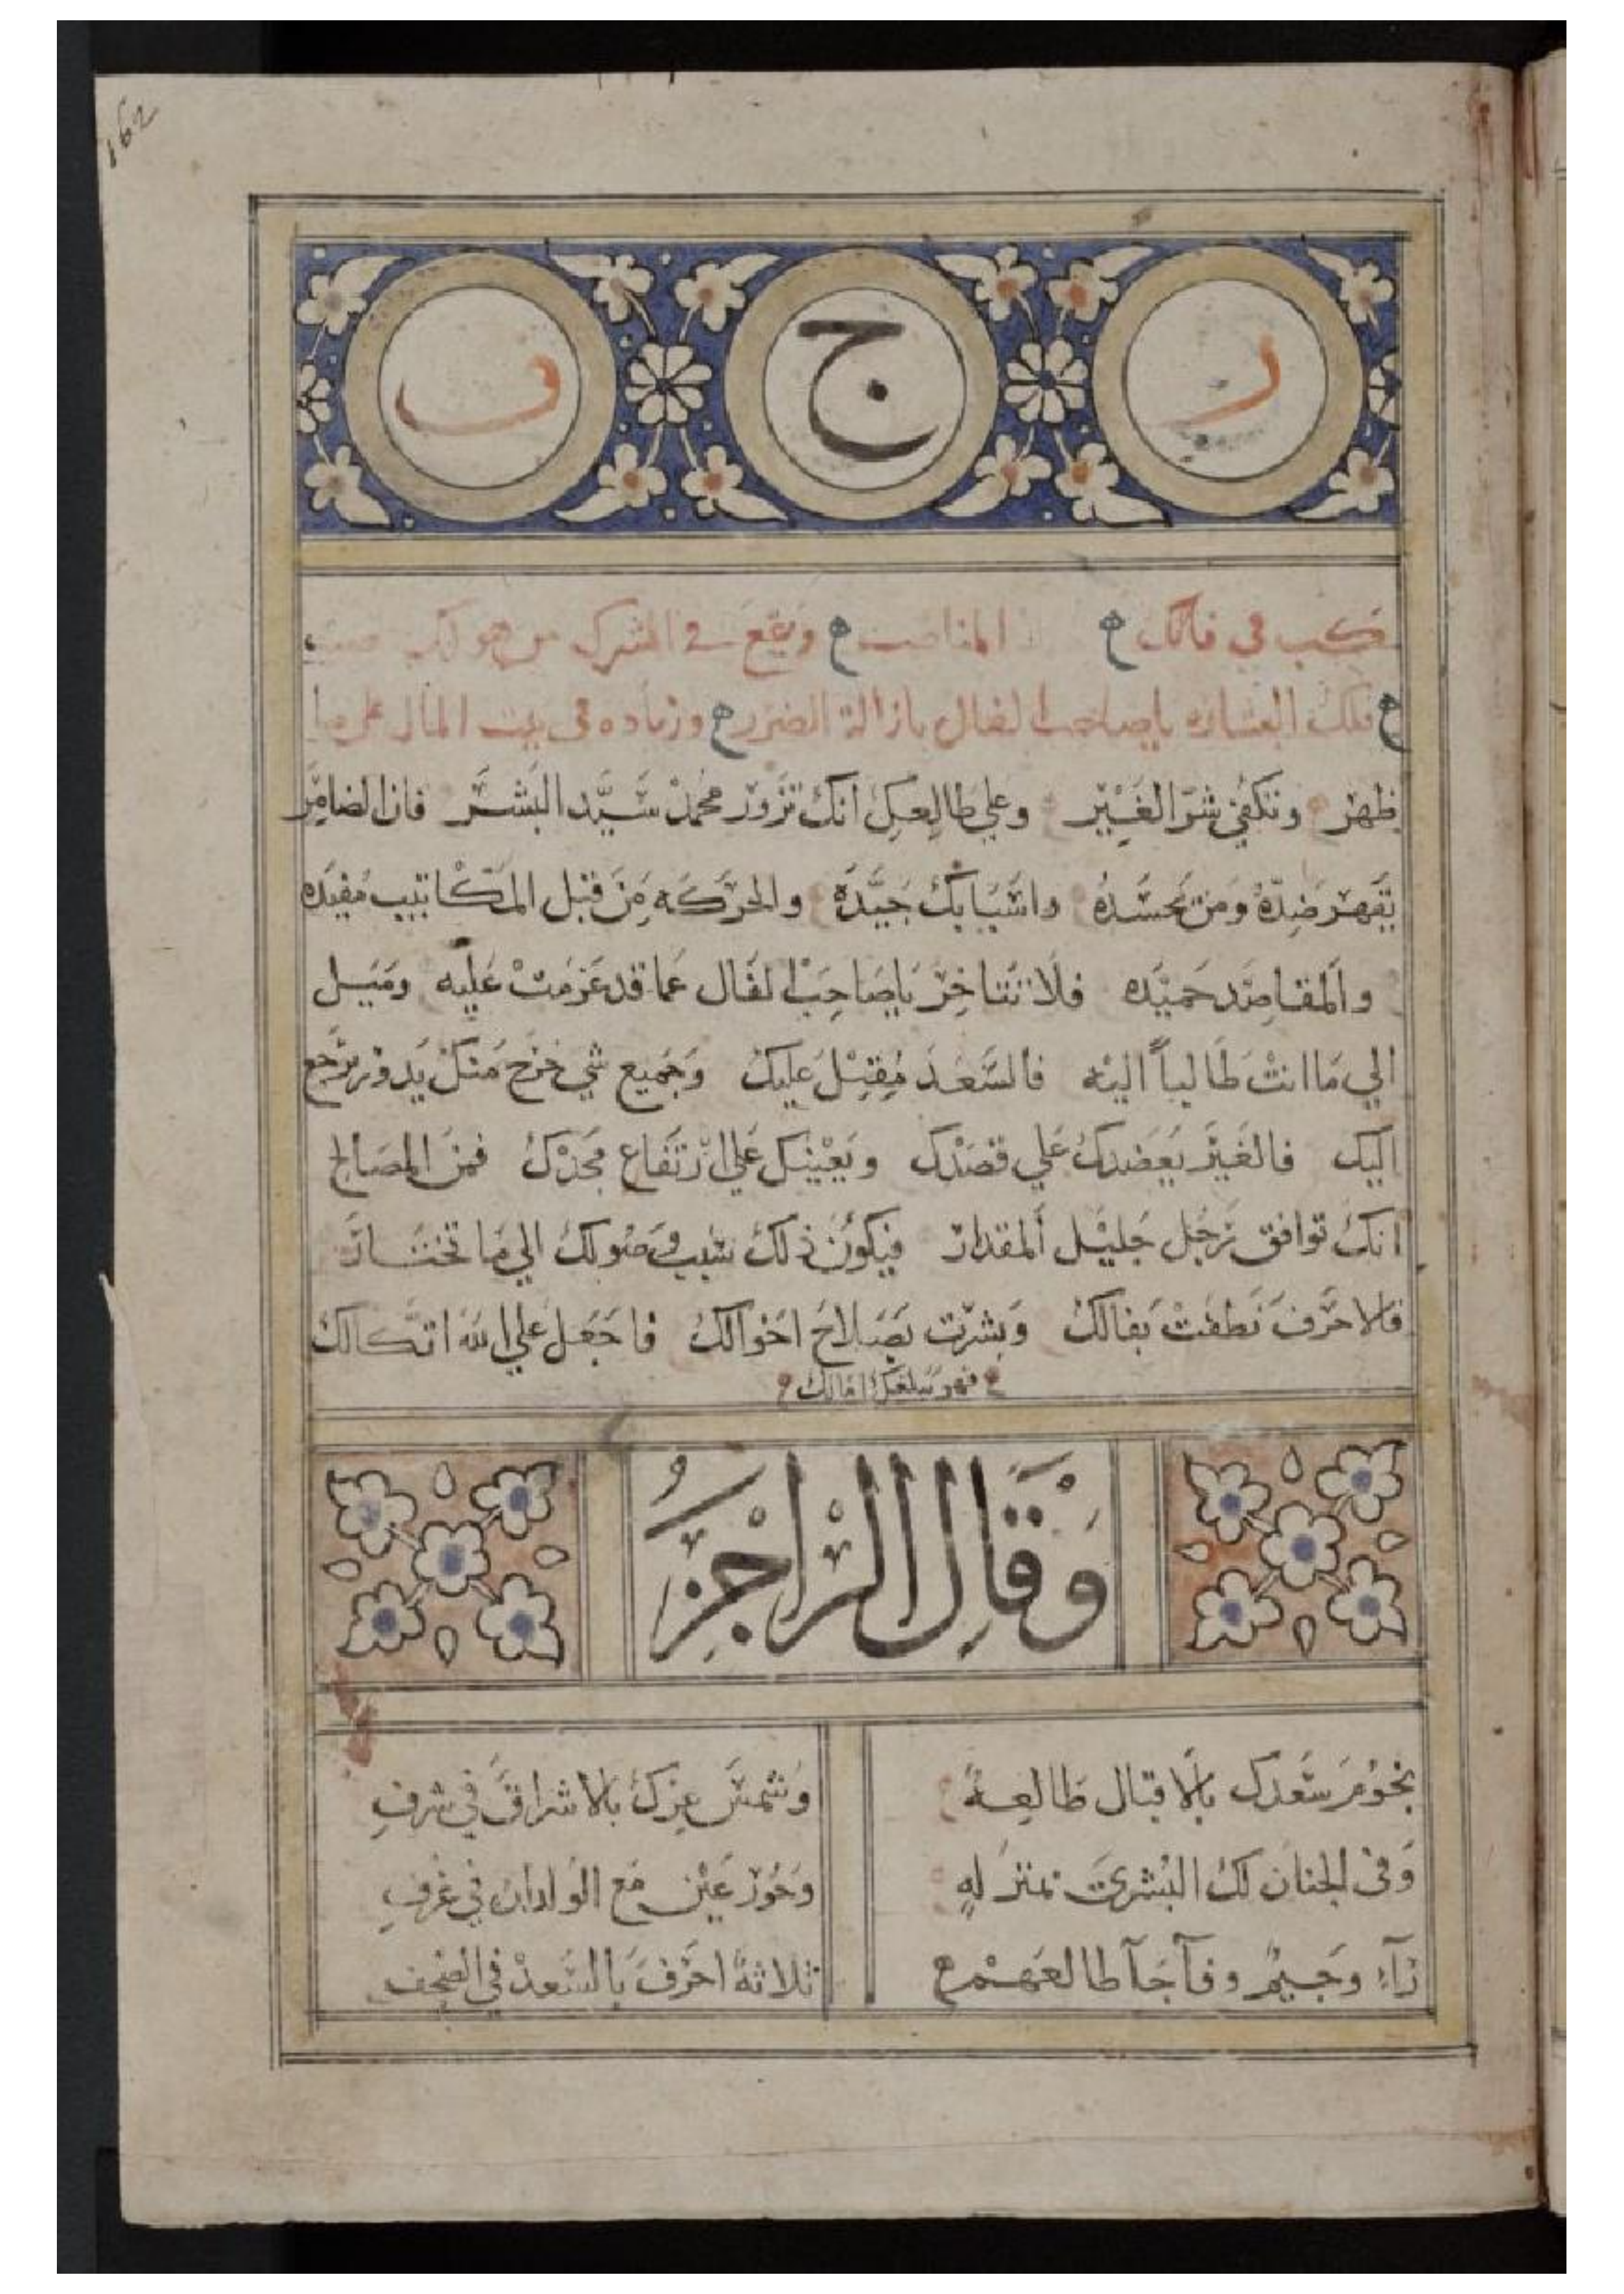 162
ر ج ف
في فالك وتقع في الشرك من هو لك
تلك البشاره ياصاحب الفال بازالة الضرر وزياده في بيت المال علي ما
ظهر وتكفي شر الغير وعلي طالعك انك تزور محمد سيد البشر فان الضامر
يقهر ضده ومن يحسده واسبابك جيده والحركه من قبل المكاتيب مفيده
والمقاصد حميده فلا تتاخر ياصاحب الفال عما قد عزمت عليه وميل
الي ما انت طالباً اليه فالسعد مقبل عليك وجميع شي خرج منك يدور يرجع
اليك فالغير يعضدك علي قصدك ويعينك علي ارتفاع مجدك فمن المصالح
انك توافق رجل جليل المقدار فيكون ذلك سبب وصولك الي ما تختار
فالاحرف نطقت بفالك وبشرت بصلاح احوالك فاجعل علي الله اتكالك
فهو يبلغك امالك
وَقَالَ الرَّاجِزُ
نجوم سعدك بالاقبال طالعة وشمس عزك بالاشراق في شرف
وفي الجنان لك البشري بمنزله وحور عين مع الولدان في غرف
رآء وجيم وفآ جآ طالعهم ثلاثة احرف بالسعد في الصحف